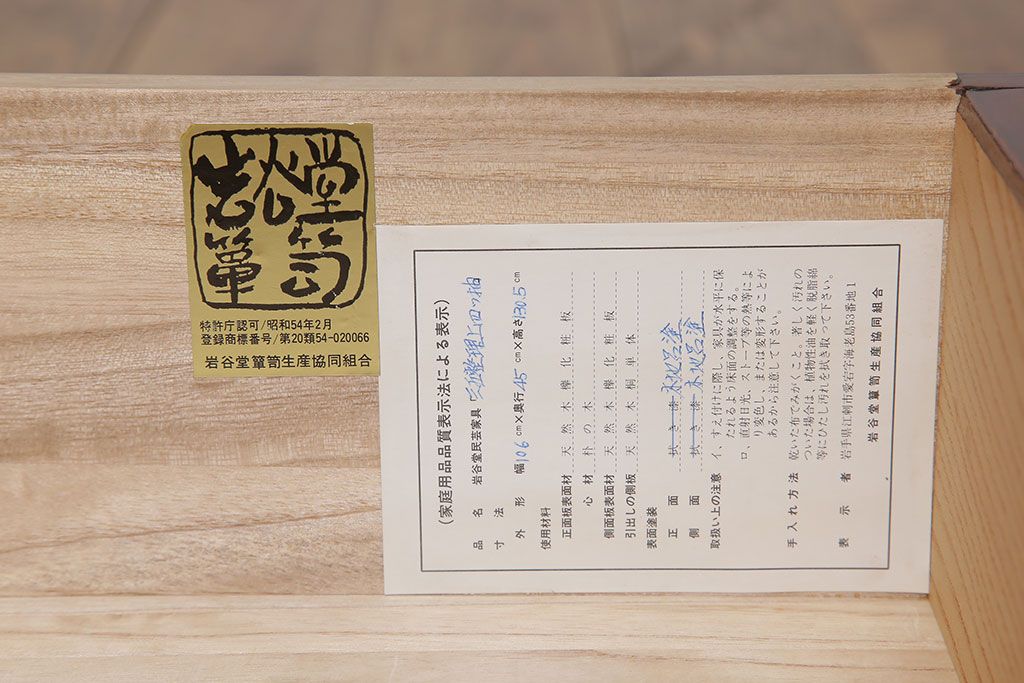 岩谷堂
箪笥
特許庁認可/昭和54年2月
登録商標番号/第20類54-020066
岩谷堂簞笥生産協同組合
(家庭用品品質表示法による表示)
品名 岩谷堂民芸家具 整理上四ツ抽
寸法
外形 幅106cm×奥行45cm×高さ130.5cm
使用材料
正面板表面材 天然木欅化粧板
心材 朴の木
側面板表面材 天然木欅化粧板
引出しの側板 天然木桐単体
表面塗装
正面 拭き漆 木地呂塗
側面 拭き漆 木地呂塗
取扱い上の注意 イ、すえ付けに際し、家具が水平に保
たれるよう床面の調整をする。
ロ、直射日光、ストーブ等の熱等によ
り変色し、または変形することが
あるから注意して下さい。
手入れ方法 乾いた布でみがくこと。著しく汚れの
ついた場合は、植物性油を軽く脱脂綿
等にひたし汚れを拭き取って下さい。
表示者 岩手県江刺市愛宕字海老島53番地1
岩谷堂簞笥生産協同組合